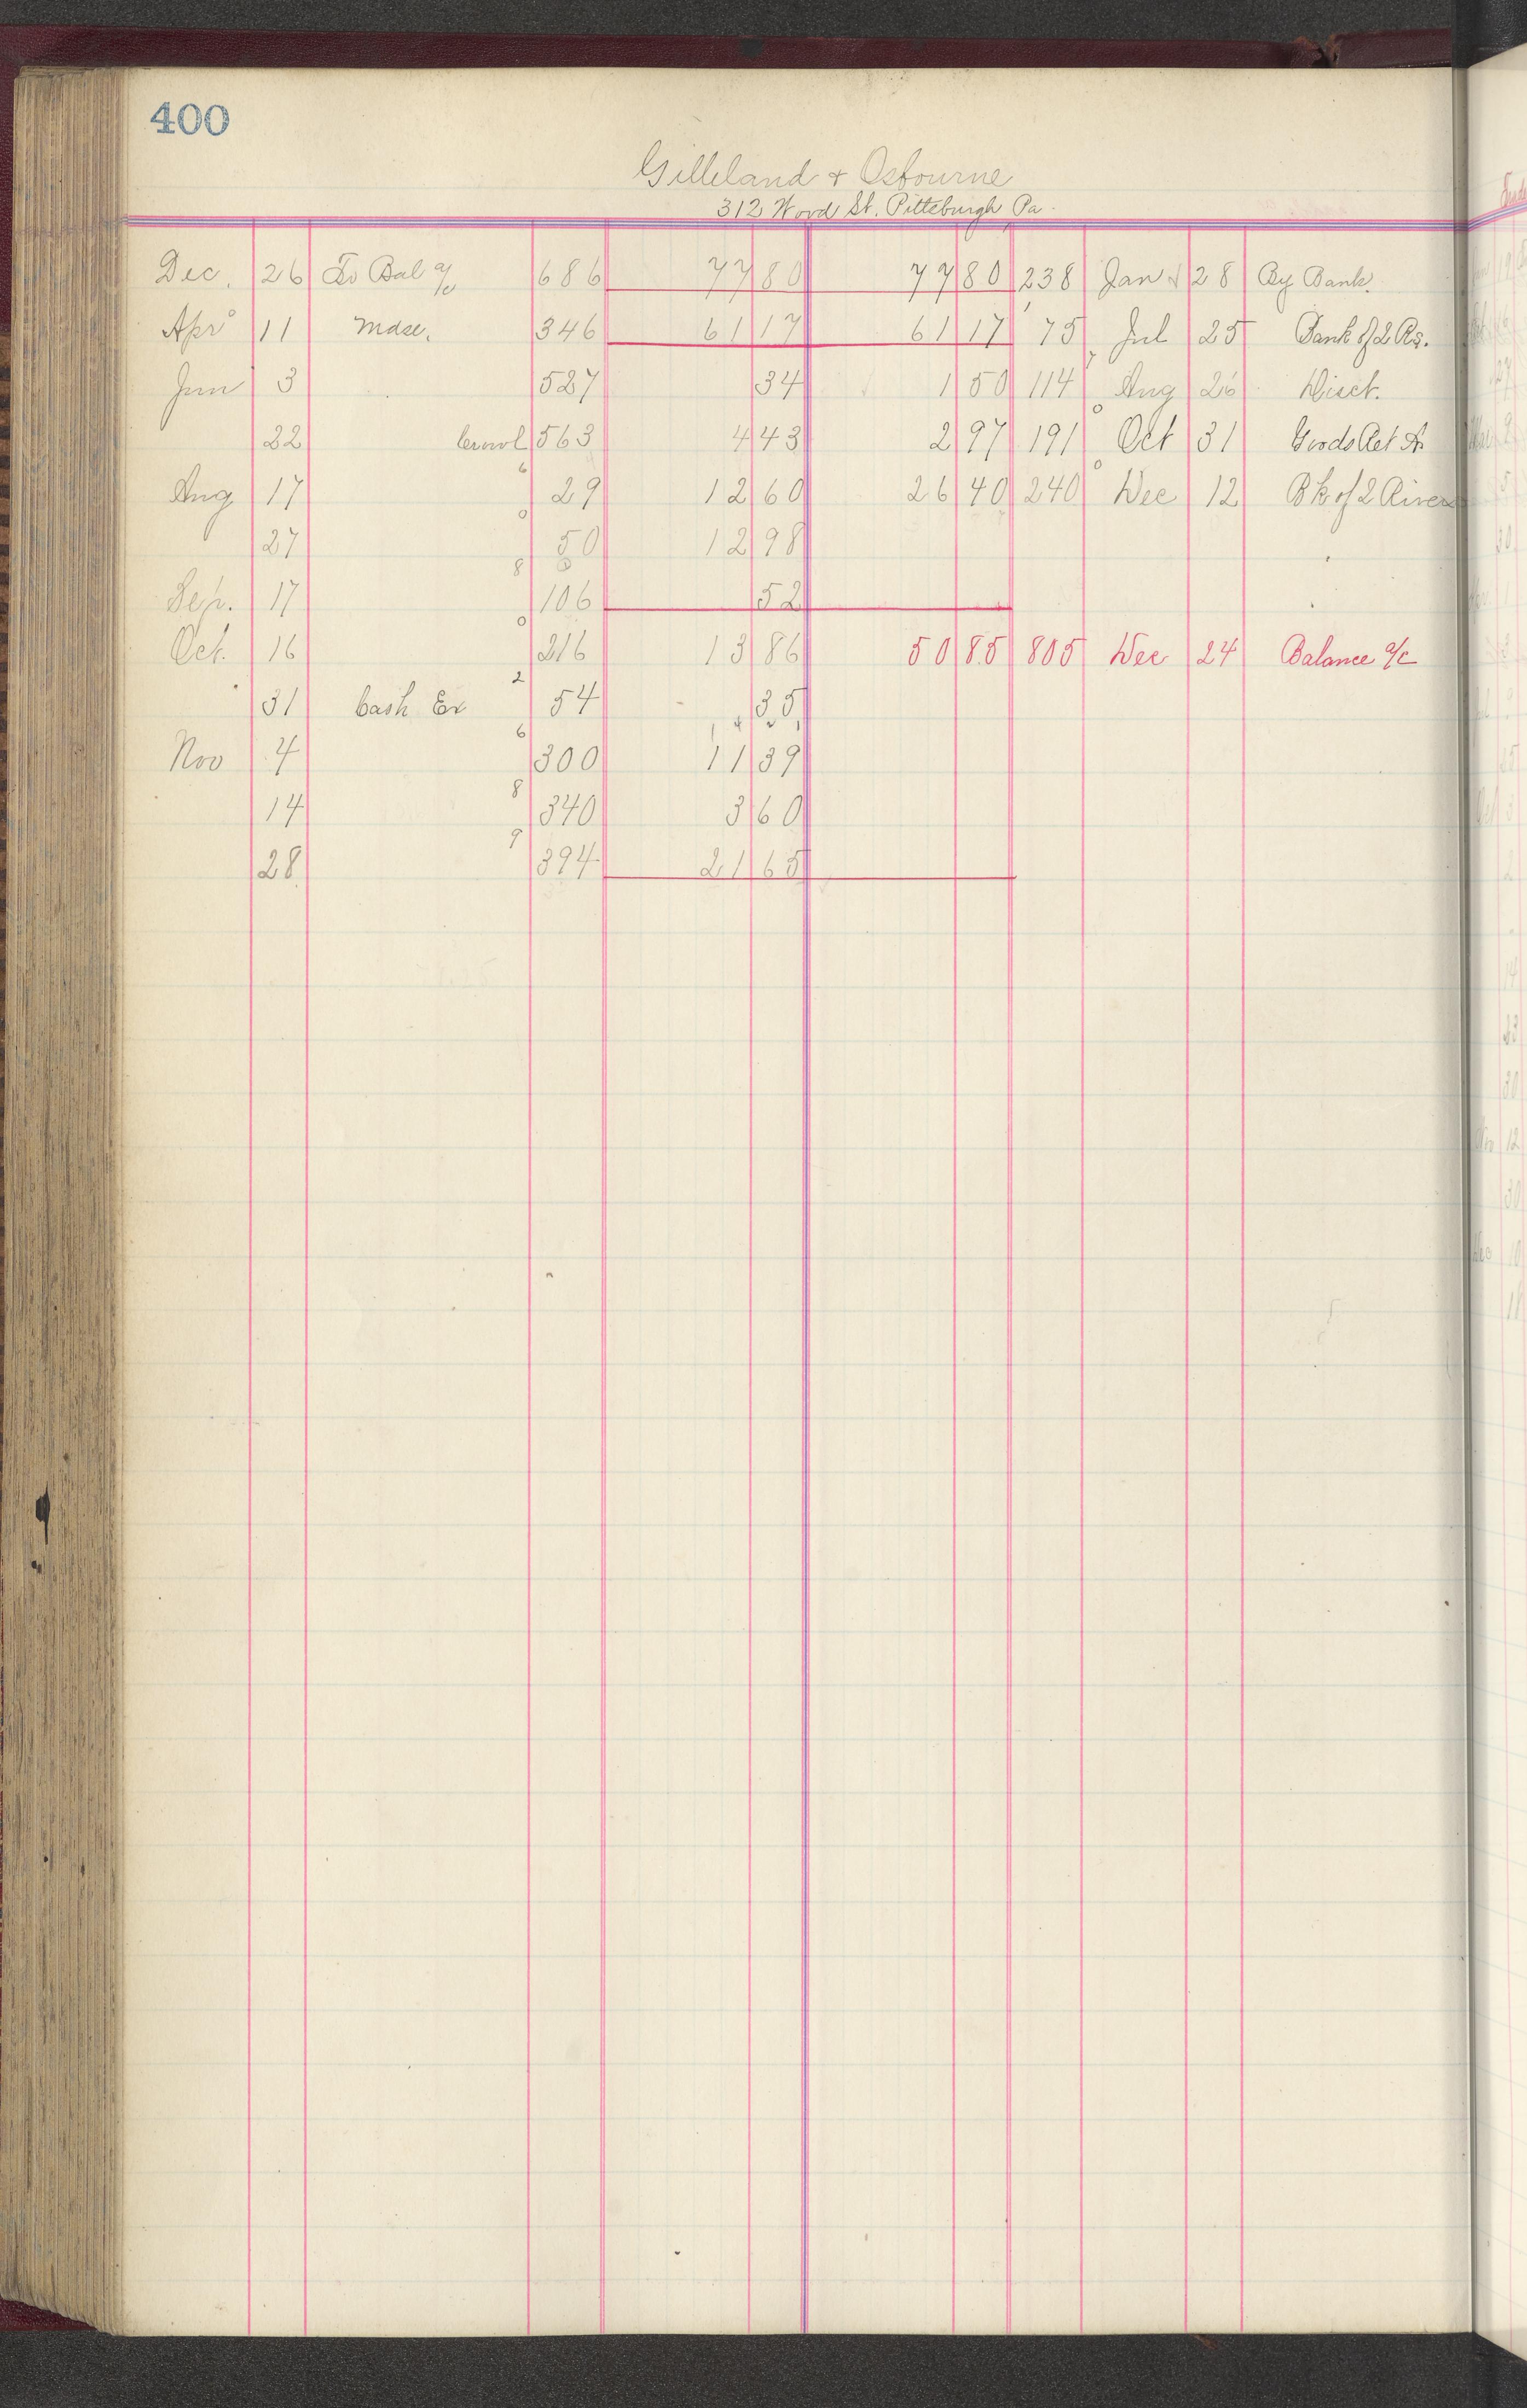 400
Gilleland & Osbourne
312 Wood St. Pittsburgh Pa.
Dec. 26 To Bal a/c 686 77 80 77 80 238 Jan 28 By Bank.
Apr 11 Mdse. 346 61 17 61 17 75 Jul 25 Bank of 2 Rs.
Jun 3 527 34 1 50 114 Aug 26 Disct.
22 563 4 43 2 97 191 Oct 31 Goods Ret
Aug 17 29 12 60 26 40 240 Dec 12 Bk of 2 Rivers
27 50 12 98
Sep. 17 106 52
Oct. 16 216 13 86 50 85 805 Dec 24 Balance a/c
31 Cash Ex 54 35
Nov 4 300 11 39
14 340 3 60
28 394 21 65